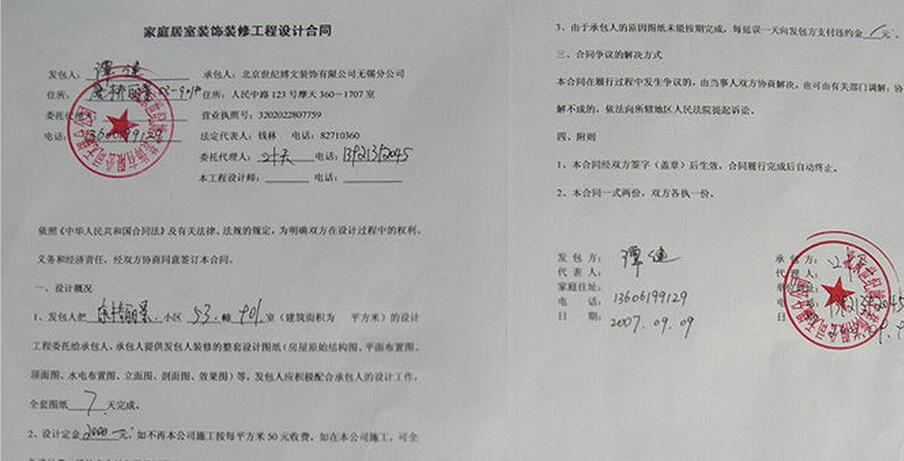 家庭居室装饰装修工程设计合同
发包人：谭健 承包人：北京世纪博文装饰有限公司无锡分公司
住所：53-901# 住所：人民中路123号摩天360－1707室
委托代理人： 营业执照号：3202022807759
电话：13606199129 法定代表人：钱林 电话：82710360
委托代理人： 电话：13921392045
本工程设计师： 电话：
依照《中华人民共和国合同法》及有关法律、法规的规定，为明确双方在设计过程中的权利、
义务和经济责任，经双方协商同意签订本合同。
一、设计概况
1、发包人把 小区 53 幢 901 室（建筑面积为 平方米）的设计
工程委托给承包人、承包人提供发包人装修的整套设计图纸（房屋原始结构图、平面布置图、
顶面图、水电布置图、立面图、剖面图、效果图）等，发包人应积极配合承包人的设计工作，
全套图纸 7 天完成。
2、设计定金 2000 元，如不再本公司施工按每平方米50元收费，如在本公司施工，可全
3、由于承包人的原因图纸未能按期完成，每延误一天向发包方支付违约金 元。
三、合同争议的解决方式
本合同在履行过程中发生争议的，由当事人双方协商解决，也可由有关部门调解；协
解不成的，依法向所辖地区人民法院提起诉讼。
四、附则
1、本合同经双方签字（盖章）后生效，合同履行完成后自动终止。
2、本合同一式两份，双方各执一份。
发包方：谭健 承包方：
代表人： 代理人：
家庭住址：
电话：13606199129 13921392045
日期：2007.09.09